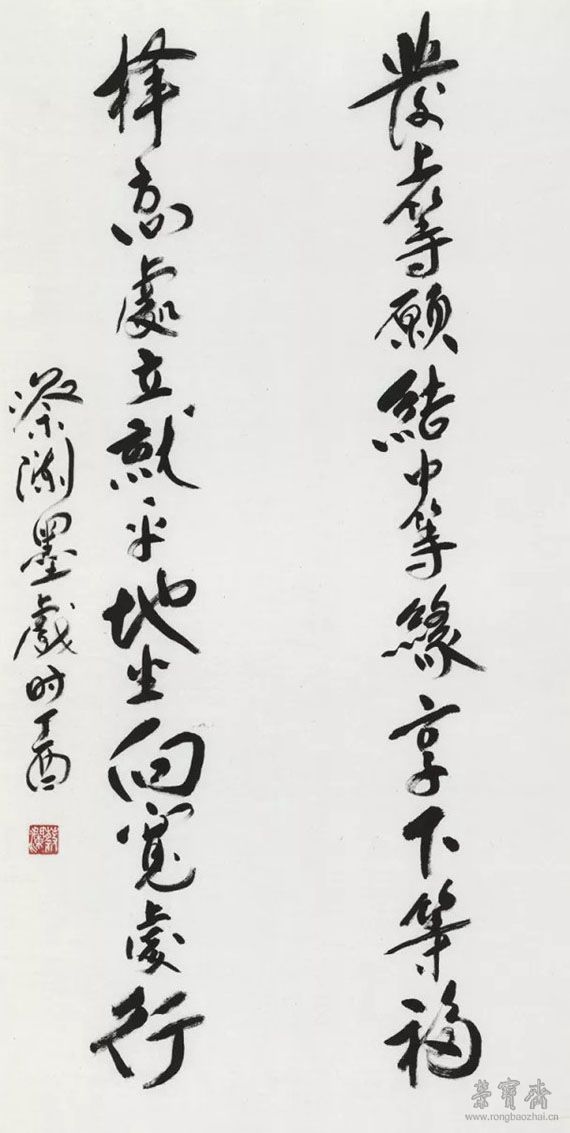 發上等願結中等緣享下等福
擇高處立就平地坐向寬處行
蔡瀾墨戲時丁酉
蔡瀾
榮寶齋
www.rongbaozhai.cn